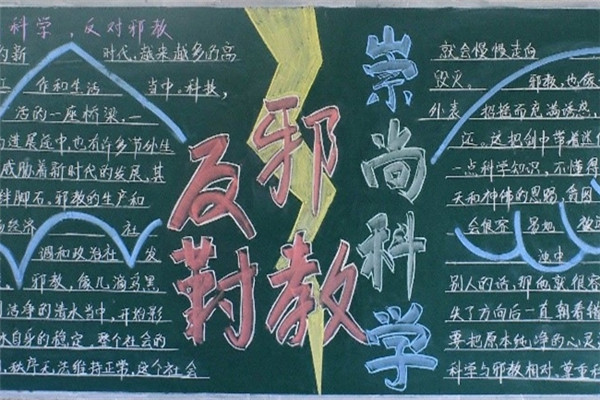 科学，反对邪教
的新 时代，越来越多的高
作和生活 当中。科技，
活的一座桥梁，一
进展途中也有许多节外生
威胁着新时代的发展，其
绊脚石。邪教的生产和
经济 社
调和政治社 发
邪教，像几滴乌黑
洁净的清水当中，开始影
水自身的稳定。整个社会的
秩序无法维持正常，这个社会
反對
邪教
崇尚科学
就会慢慢走向
毁灭。 邪教，也像
外表 挺挺而充满诱惑，
还。这把剑中带着迷
一点科学知识，不懂得
天和神佛的思路，
会很容 易地
浊中
别人的话，那他就很容
失了方向后一直朝着错
要把原本纯净的心灵
科学与邪教相对，尊重科